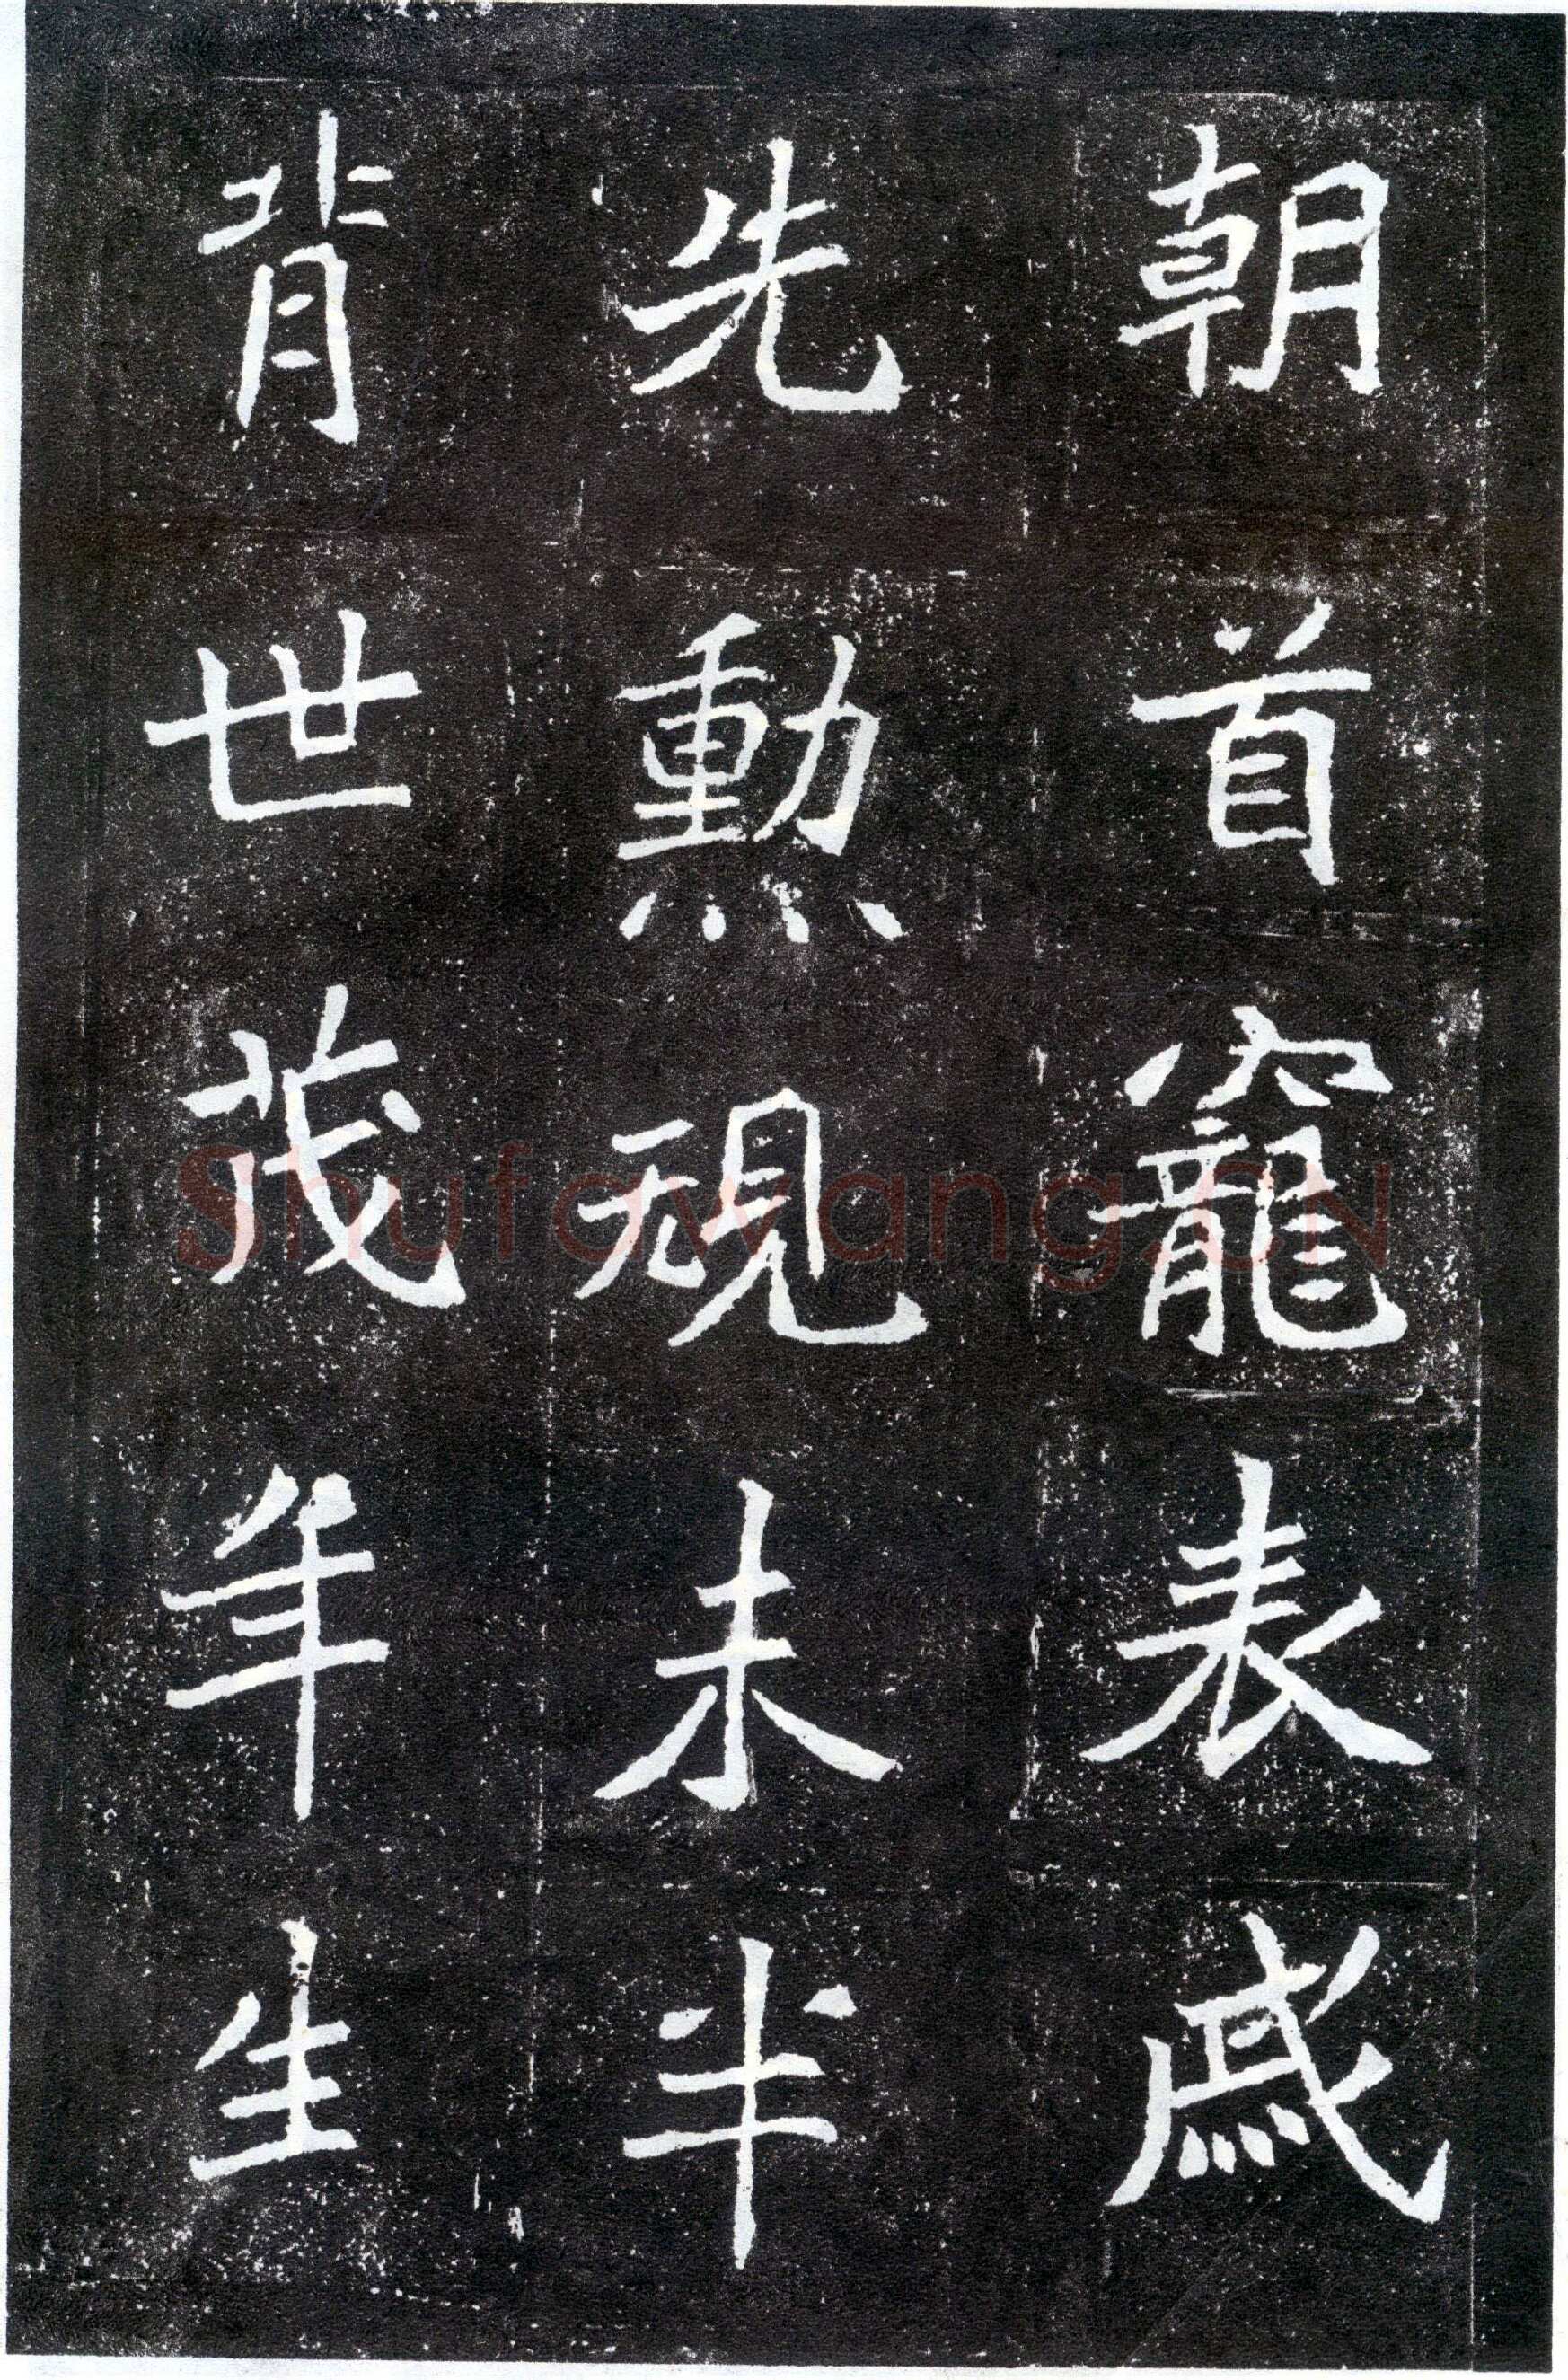 朝首竉表戚
先勲規未半
背世茂年生
Shufawang.CN